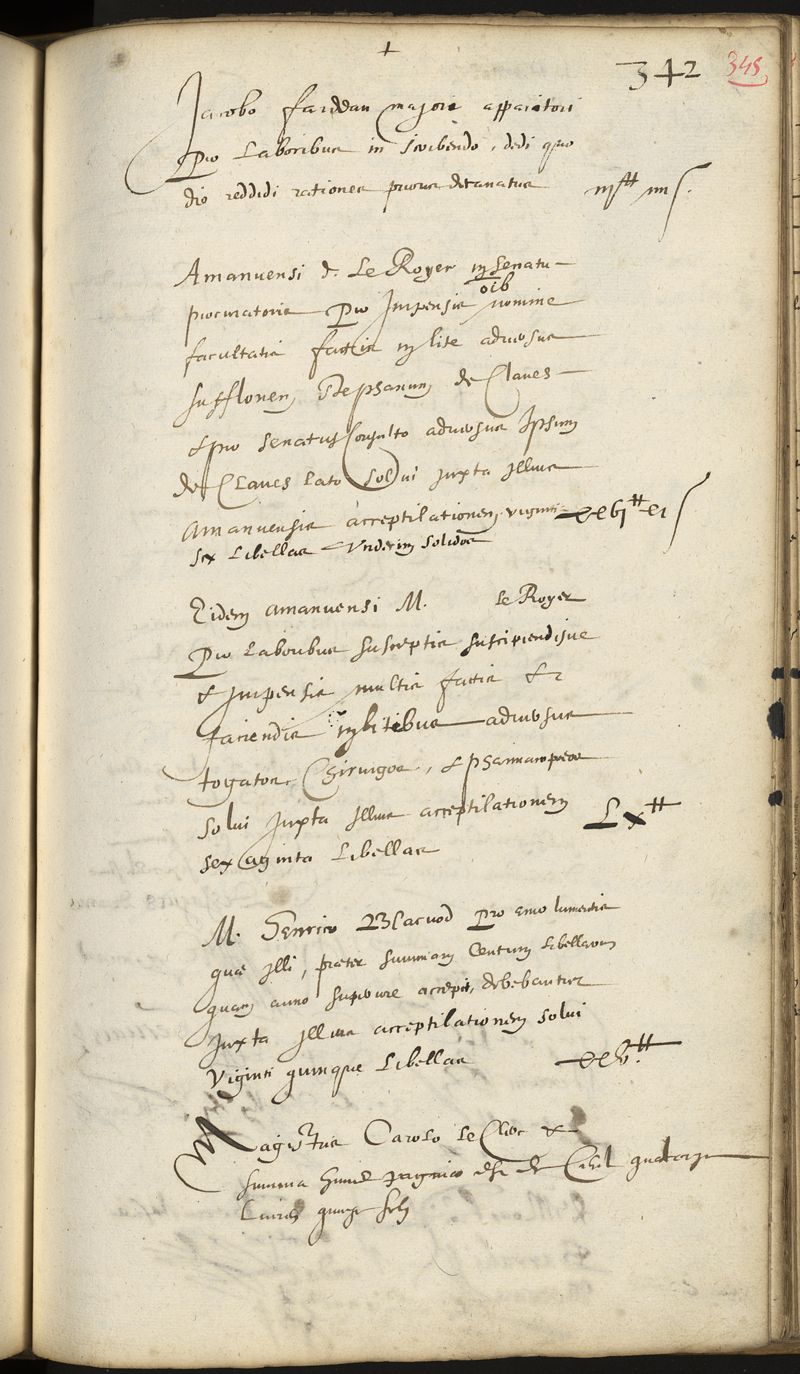 342 345
Jacobo fardeau majori apparitori
Pro Laboribus in scribendo, dedi quo
die reddidi rationes prioris decanatus iii# iiii s.
Amanuensi d. Le Royer in senatu
procuratoris Pro Impensis oib nomine
facultatis factis in lite adversus
sufflonem Stepsanum de Claves
& pro senatus Consulto adversus Ipsum
de Claves lato solvi juxta illius
Amanuensis acceptilationem viginti xxvj# xi s
sex Libellas undecim solidos
Eidem amanuensi M. Le Royer
Pro Laboribus susceptis suscipiendisque
& Impensis multis factis &
faciendis in litibus adversus
togatos Chirurgos, &
solvi juxta illius acceptilationem Lx#
sexaginta Libellas
M. Henrico Blacuod Pro emolumentis
quae illi, praeter summam Centum Libellarum
quam anno superiore accepit, debebantur
juxta illius acceptilationem solvi
Viginti quinque Libellas xxv#
Magistris Carolo Le Clerc &
summa